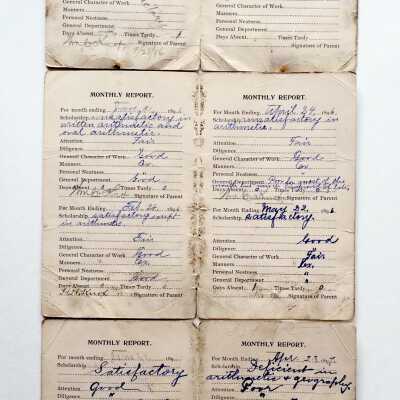 General Character of Work
Manners
Personal Neatness
General Department
Days Absent Times Tardy
Signature of Parent
Personal Neatness
General Department
Days Absent Times Tardy
Signature of Parent
MONTHLY REPORT.
For month Ending
Scholarship unsatisfactory in
written arithmetic and
oral arithmetic.
Attention Fair
Diligence
General Character of Work Good
Manners Ex.
Personal Neatness
General Department Good
Days Absent Times Tardy
Signature of Parent
For Month Ending Feb.
Scholarship satisfactory except
in arithmetic.
Attention Fair
Diligence
General Character of Work Good
Manners Ex.
Personal Neatness
General Department Good
Days Absent 0 Times Tardy
Signature of Parent
MONTHLY REPORT.
For month Ending April 24, 1896
Scholarship unsatisfactory in
arithmetic.
Attention Fair
Diligence
General Character of Work Good
Manners Ex.
Personal Neatness
General Department
Days Absent Times Tardy
Signature of Parent
For Month Ending May 22, 1896
Scholarship satisfactory.
Attention Good
Diligence "
General Character of Work Fair
Manners Ex.
Personal Neatness "
General Department Good
Days Absent Times Tardy 0
Signature of Parent
MONTHLY REPORT.
For month ending
Scholarship
Satisfactory
Attention Good
Diligence "
MONTHLY REPORT.
For Month Ending Apr. 23
Scholarship Deficient in
arithmetic & geography.
Attention Poor
Diligence "